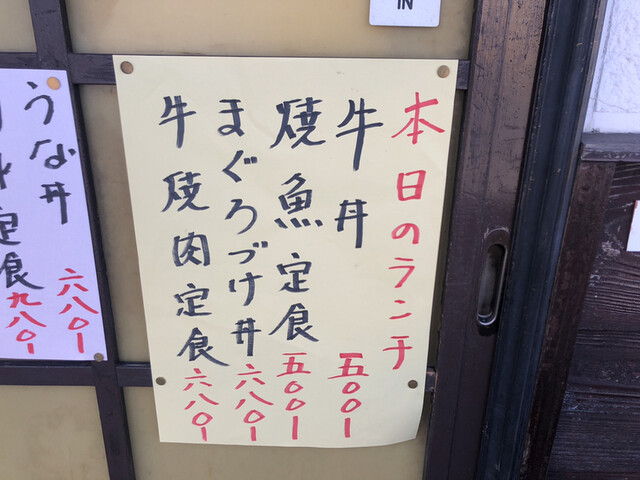 IN
本日のランチ
牛丼 五〇〇-
焼魚定食 五〇〇-
まぐろづけ丼 六八〇-
牛焼肉定食 六八〇-
うな丼 六八〇-
定食 九八〇-